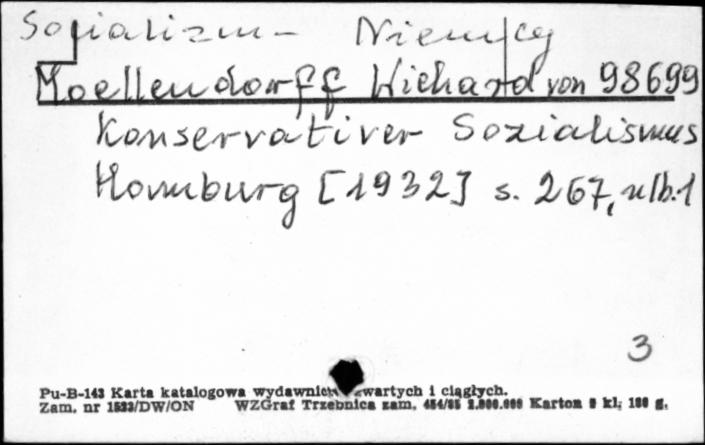 Socjalizm - Niemcy
Moellendorff Wichard von 98699
Konservativer Sozialismus
Hamburg [1932] s. 267, nlb. 1
3
Pu-B-143 Karta katalogowa wydawnictw zwartych i ciągłych.
Zam. nr 1523/DW/ON WZGraf Trzebnica zam. 454/55 2.000.000 Karton 5 kl; 180 g.